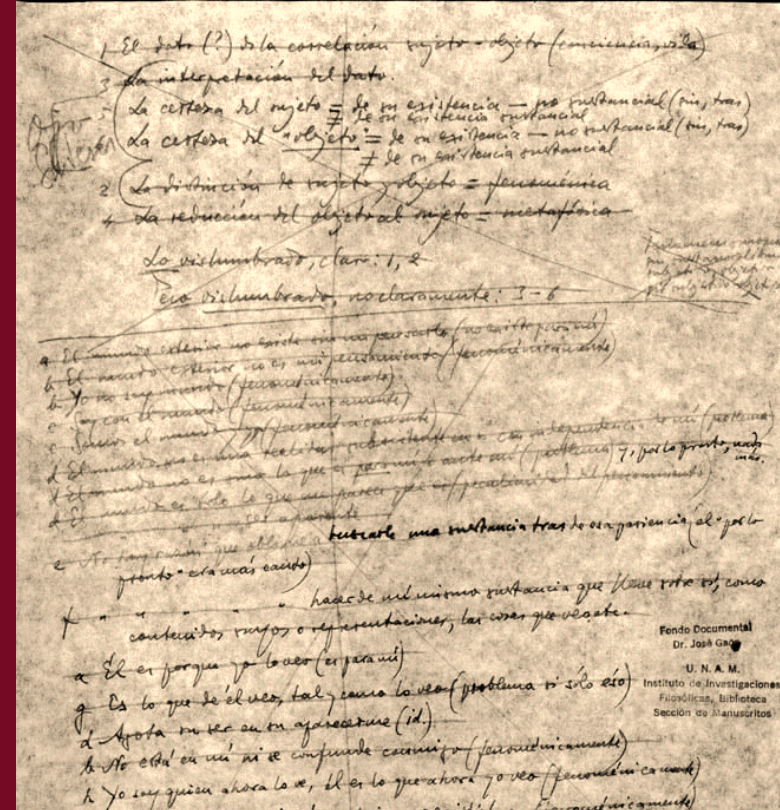 1 El dato (?) de la correlación sujeto-objeto (conciencia, vida)
3 La interpretación del dato.
5 La certeza del sujeto = de su existencia — no sustancial (sin, tras)
≠ de su existencia sustancial
6 La certeza del "objeto" = de su existencia — no sustancial (sin, tras)
≠ de su existencia sustancial
2 La distinción de sujeto y objeto = fenoménica
4 La reducción del objeto al sujeto = metafísica
Lo vislumbrado, claro: 1, 2
Pero vislumbrado, no claramente: 3-6
a El mundo exterior no existe sin mi pensarlo (no existe para mí)
b El mundo exterior no es mi pensamiento (fenoménicamente)
b Yo no soy mundo (fenoménicamente)
c Soy con el mundo (fenoménicamente)
c Somos el mundo y yo (fenoménicamente)
d El mundo no es una realidad subsistente en sí con independencia de mí (problema)
d El mundo no es sino lo que es para mí o ante mí (problema) y, por lo pronto, nada
más.
d El mundo es sólo lo que me parece que es
ser aparente
e No hay razón que obligue a buscarle una sustancia tras de esa apariencia (el "por lo
pronto" era más cauto)
f " " " " " hacer de mí mismo sustancia que lleve sobre sí, como
contenidos suyos o representaciones, las cosas que veo etc.
a Él es porque yo lo veo (es para mí)
g Es lo que de él veo, tal y como lo veo (problema si sólo eso)
d Agota su ser en su aparecerme (id.)
b No está en mí ni se confunde conmigo (fenoménicamente)
h Yo soy quien ahora lo ve, él es lo que ahora yo veo (fenoménicamente)
Fondo Documental
Dr. José Gaos
U. N. A. M.
Instituto de Investigaciones
Filosóficas, Biblioteca
Sección de Manuscritos